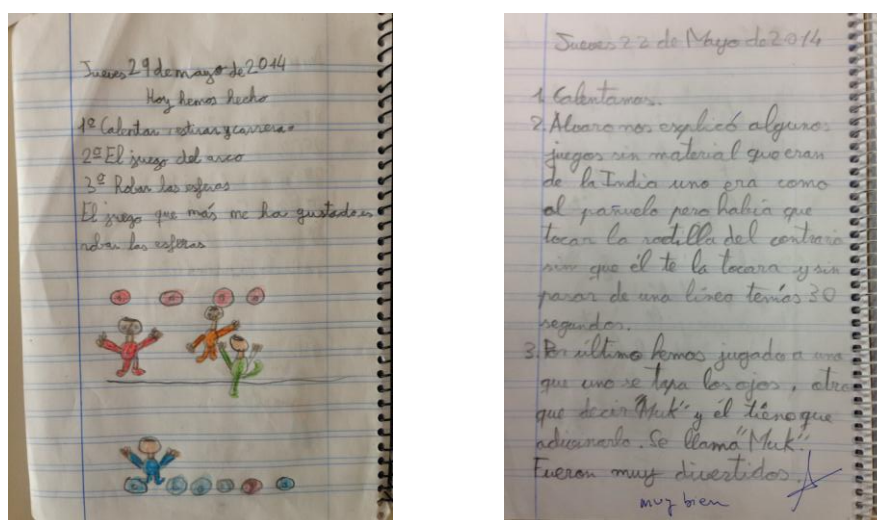 Jueves 29 de mayo de 2014
Hoy hemos hecho
1º Calentar estirar y carreras
2º El juego del arco
3º Robar las esferas
El juego que más me ha gustado es
robar las esferas
Jueves 22 de Mayo de 2014
1. Calentamos.
2. Alvaro nos explicó algunos
juegos sin material que eran
de la India uno era como
al pañuelo pero había que
tocar la rodilla del contrario
sin que él te la tocara y sin
pasar de una línea tenías 30
segundos.
3. Por último hemos jugado a una
que uno se tapa los ojos, otro
que decir "Muk" y él tiene que
adivinarlo. Se llama "Muk".
Fueron muy divertidos.
muy bien